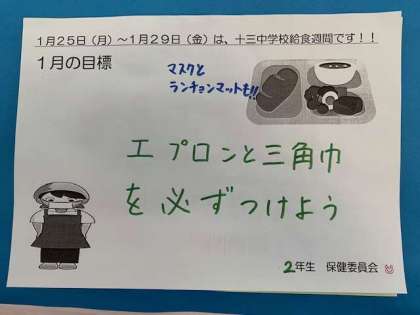 1月25日(月)~1月29日(金)は、十三中学校給食週間です!!
1月の目標
マスクと
ランチョンマットも!!
エプロンと三角巾
を必ずつけよう
2年生 保健委員会